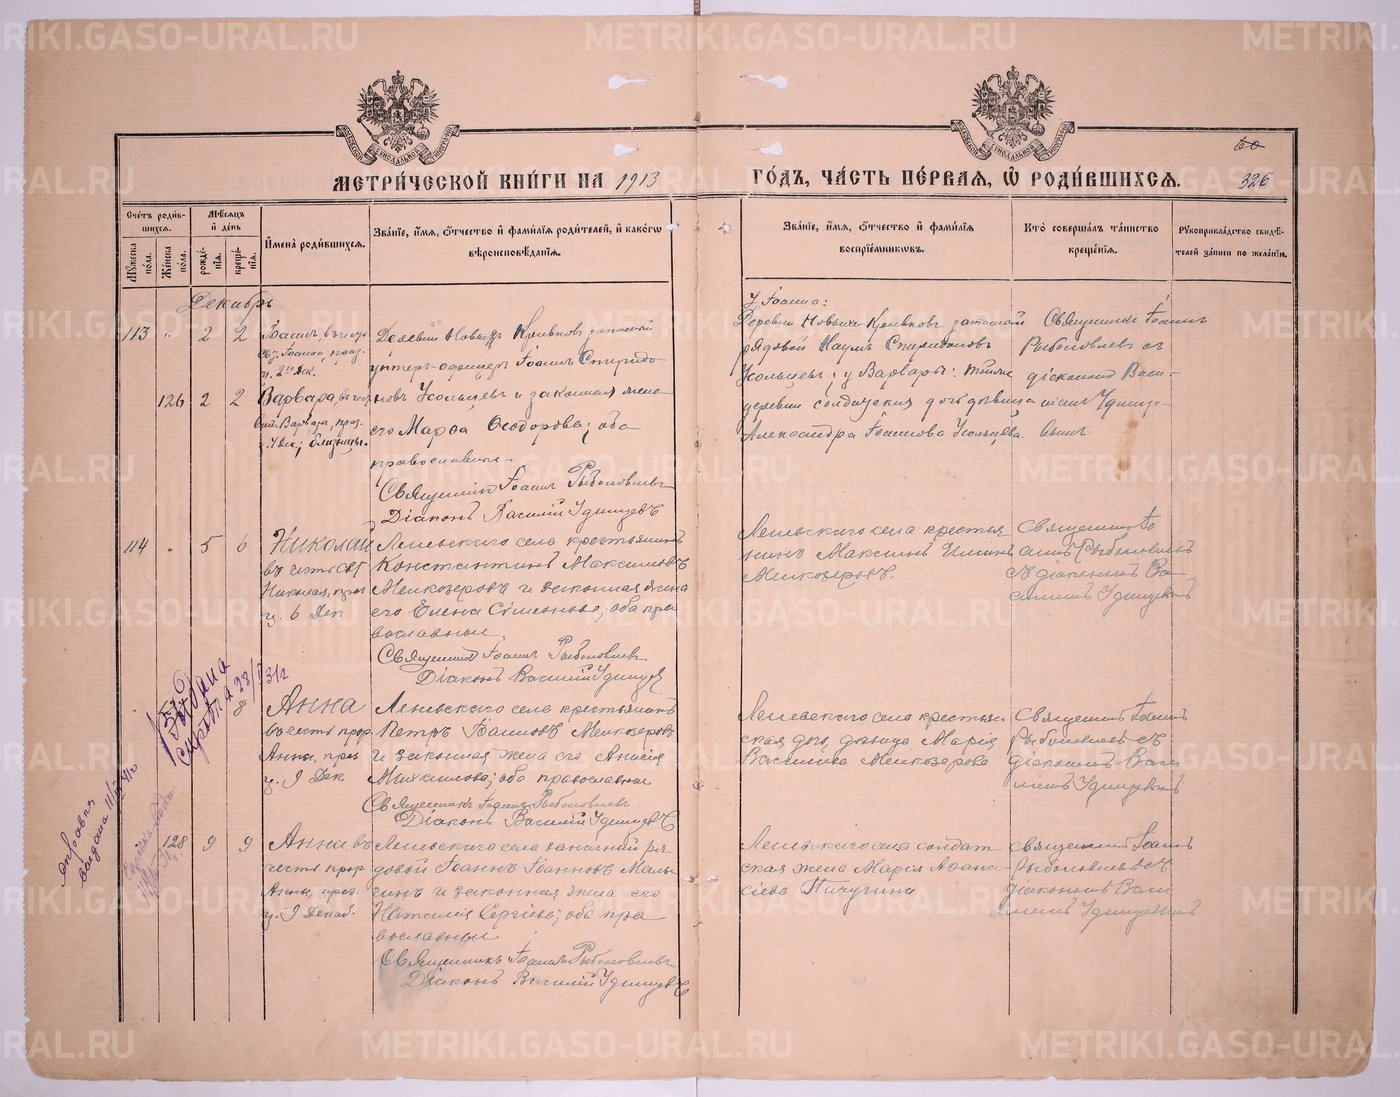 МЕТРИ́ЧЕСКОЙ КНИ́ГИ НА 1913
ГО́ДЪ, ЧА́СТЬ ПЕ́РВАЯ, Ѽ РОДИ́ВШИХСЯ.
60
326
Сче́тъ роди́в-
шихся.
Мѣ́сяцъ
и҆ де́нь
Му́жеска по́ла.
Же́нска по́ла.
рожде́-
нїя.
креще́-
нїя.
И҆мена̀ роди́вшихся.
Зва́нїе, и҆́мя, ѻ҆́тчество и҆ фами́лїя роди́телей, и҆ како́гѡ
вѣроисповѣ́данїя.
Зва́нїе, и҆́мя, ѻ҆́тчество и҆ фами́лїя
воспрїе́мниковъ.
Кто̀ соверша́лъ та́инство
креще́нїя.
Рукоприкла́дство свидѣ́-
телей за́писи по жела́нїю.
Декабрь
113 " 2 2
Іоаннъ, въ честь
св. Іоанна, празд.
Деревни Новыхъ Кривковъ запасный
унтеръ-офицеръ Іоаннъ Спиридо
126 2 2
Варвара въ чест
Варвара, праз.
ц. 4 Дек; близнецы.
новъ Усольцевъ и законная жена
его Марѳа Ѳеодорова; оба
православные
Священникъ Іоаннъ Рыболовлевъ
Діаконъ Василій Удинцевъ
У Іоанна:
Деревни Новыхъ Кривковъ запасный
рядовой Наумъ Спиридоновъ
Усольцевъ; у Варвары: тойже
деревни солдатская дочь девица
Александра Іоаннова Усольцева.
Священникъ Іоаннъ
Рыболовлевъ съ
діакономъ Васи-
ліемъ Удинце-
вымъ
114 " 5 6
Николай
въ честь свт
Николая, праз
ц. 6 Дек.
Леневского села крестьянинъ
Константинъ Максимовъ
Мелкозеровъ и законная жена
его Елена Симеонова, оба пра
вославные.
Священникъ Іоаннъ Рыболовлевъ
Діаконъ Василій Удинцевъ
Леневского села крестья
нинъ Максимъ
Мелкозеровъ.
Священникъ Іо
аннъ Рыболовлевъ
съ діакономъ Ва-
силіемъ Удинцевымъ
8
Анна
въ честь прор.
Анны, праз
ц. 9 Дек
Леневского села крестьянинъ
Петръ Іоанновъ Мелкозеровъ
и законная жена его Анисія
Михаилова; оба православные
Священникъ Іоаннъ Рыболовлевъ
Діаконъ Василій Удинцевъ
Леневского села крестьян
ская дочь, девица Марія
Васильева Мелкозерова
Священникъ Іоаннъ
Рыболовлевъ съ
діакономъ Васи
ліемъ Удинцевымъ
128 9 9
Анна въ
честь прор
Анны, праз.
ц. 9 Декаб.
Леневского села запасный ря
довой Іоаннъ Іоанновъ Малы
гинъ и законная жена его
Наталія Сергіева; оба пра
вославные
Священникъ Іоаннъ Рыболовлевъ
Діаконъ Василій Удинцевъ
Леневского села солдат
ская жена Марія Аѳана
сіева Пичугина
Священникъ Іоаннъ
Рыболовлевъ съ
діакономъ Васи
ліемъ Удинцевымъ
справка
выдана
METRIKI.GASO-URAL.RU